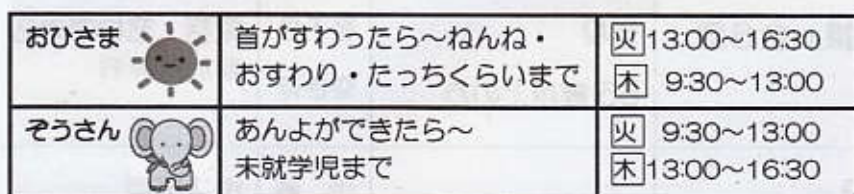 おひさま
首がすわったら〜ねんね・
おすわり・たっちくらいまで
火 13:00〜16:30
木 9:30〜13:00
ぞうさん
あんよができたら〜
未就学児まで
火 9:30〜13:00
木 13:00〜16:30